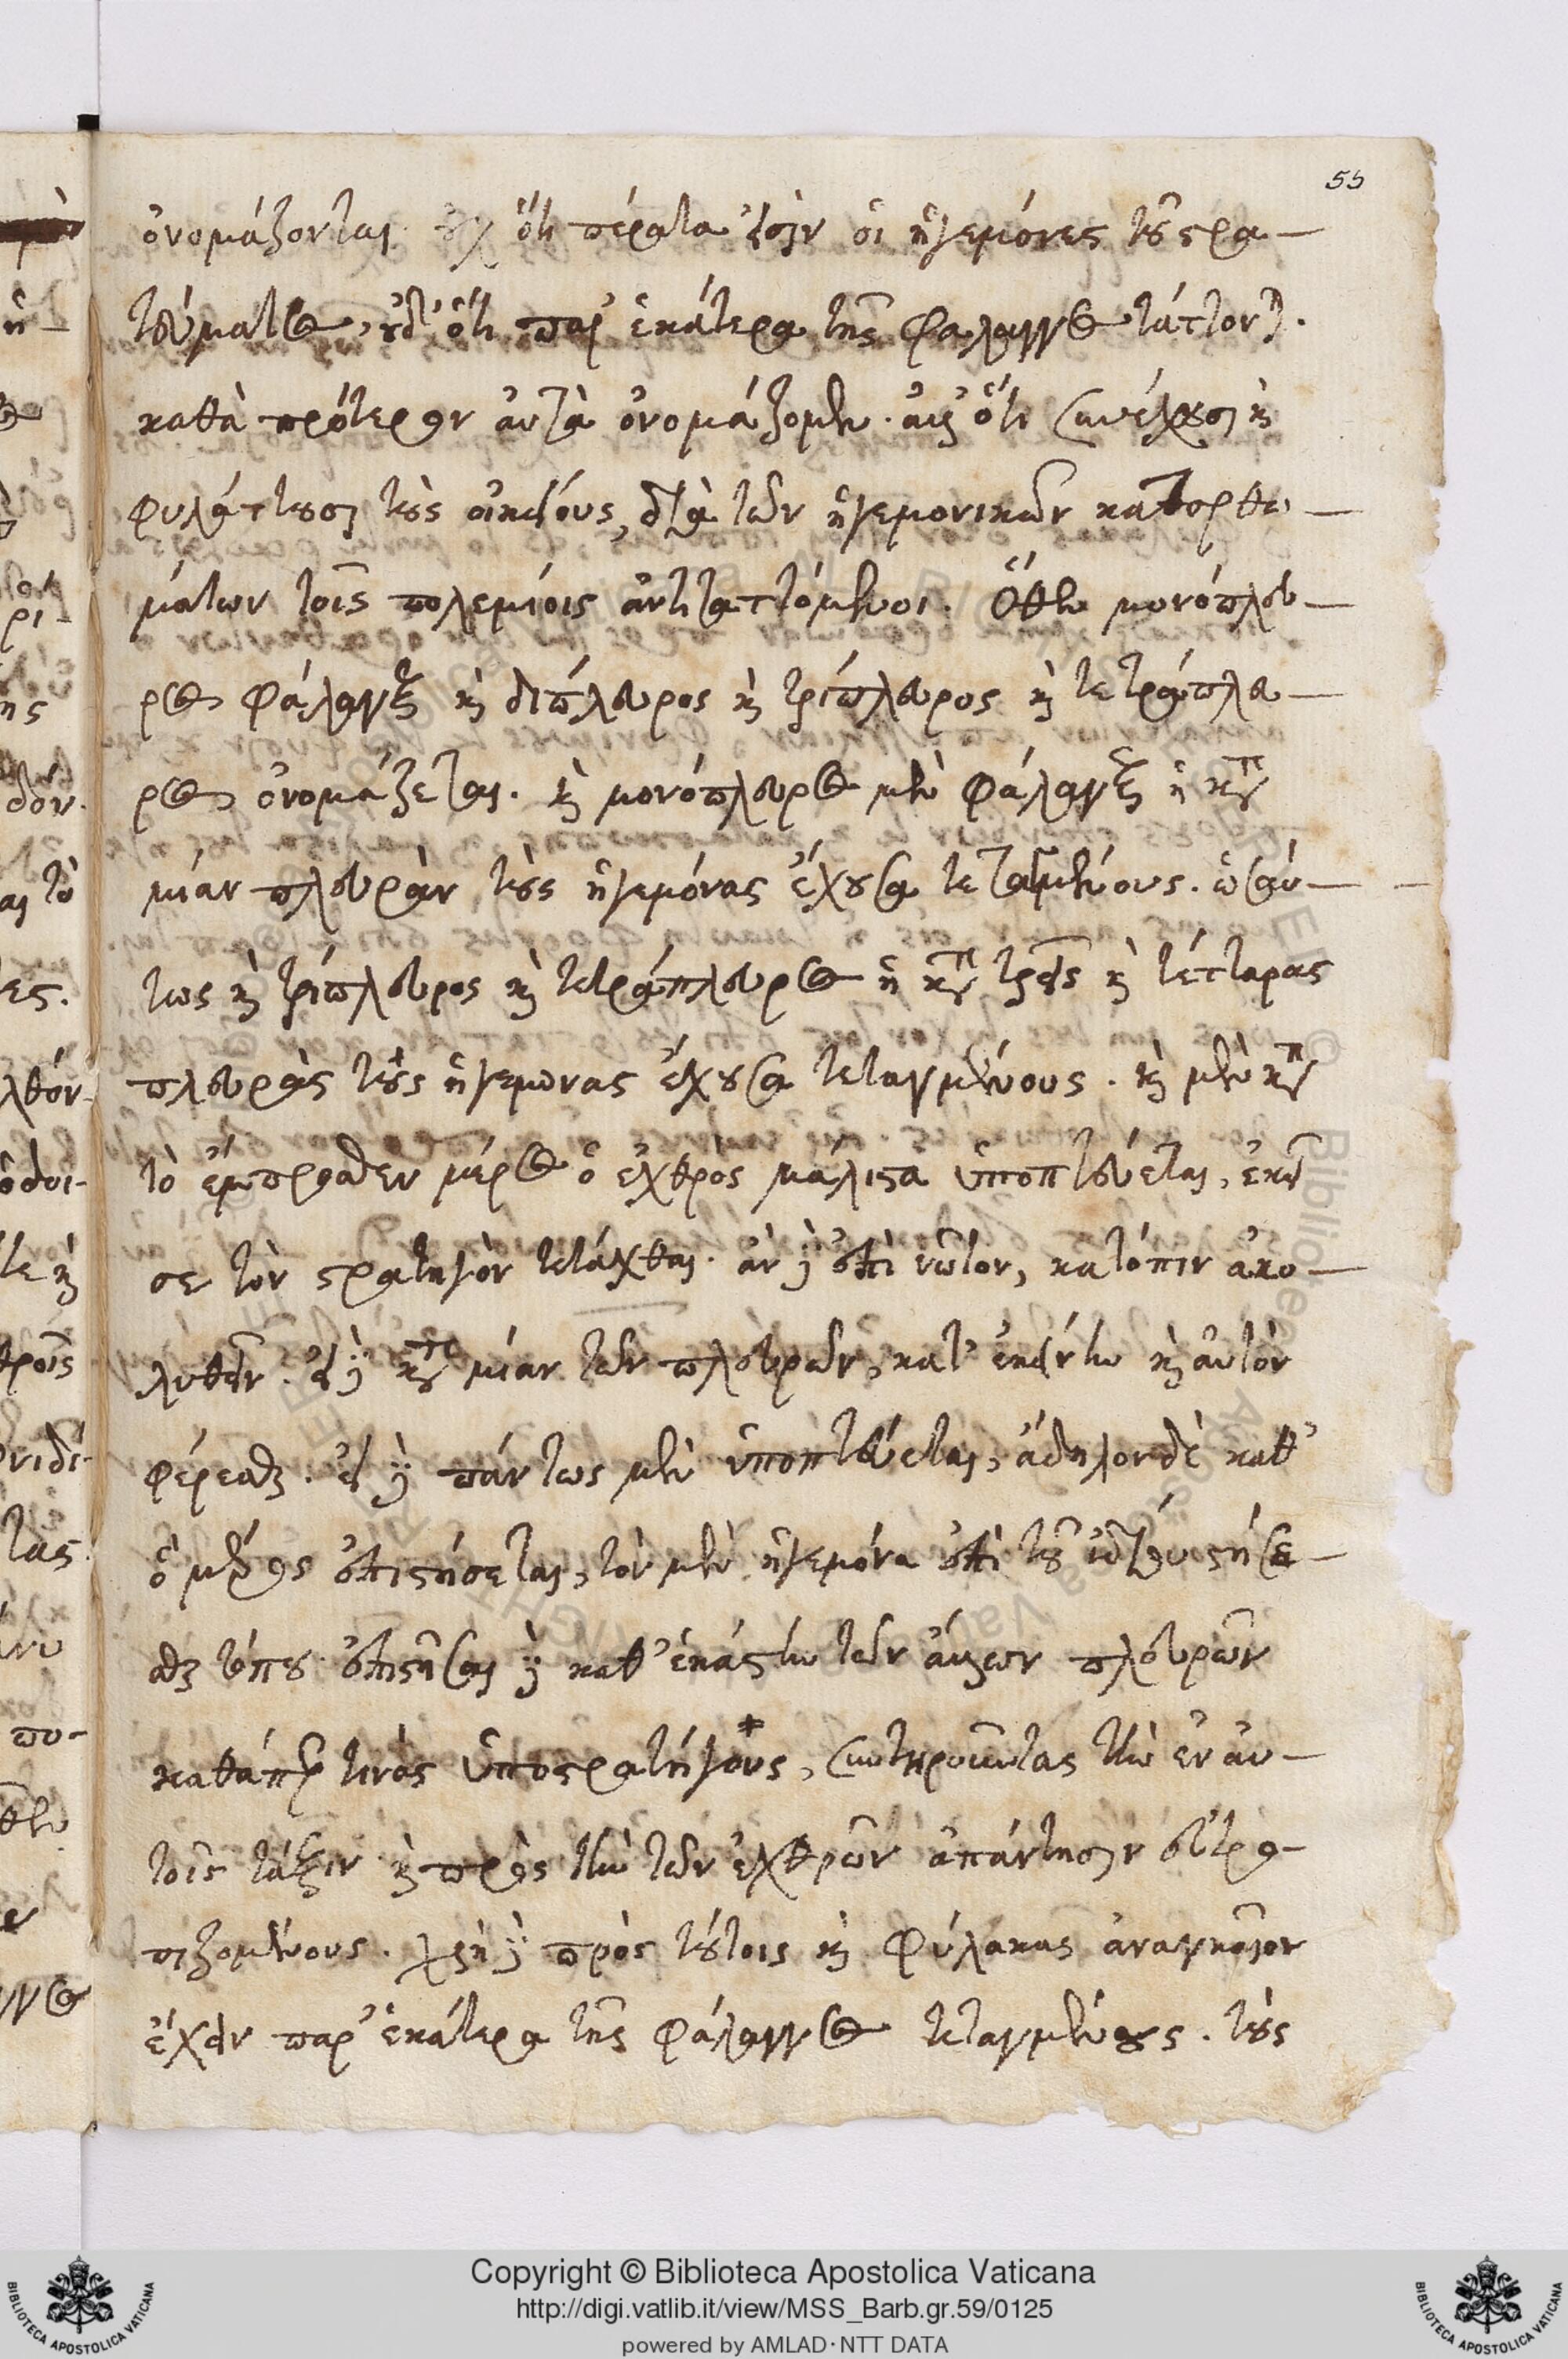 55
ὀνομάζονται οὐχ ὅτι πέρατα εἰσὶν οἱ ἡγεμόνες τοῦ στρα-
τεύματος, οὐδ' ὅτι παρ' ἑκάτερα τῆς φάλαγγος τάττονται.
καθὰ πρότερον αὐτὰ ὀνομάζομεν. ἀλλ' ὅτι συνέχουσι καὶ
φυλάττουσι τοὺς οἰκείους, διὰ τῶν ἡγεμονικῶν κατορθω-
μάτων τοῖς πολεμίοις ἀντιταττόμενοι. Ὅθεν μονόπλευ-
ρος φάλαγξ καὶ δίπλευρος καὶ τρίπλευρος καὶ τετράπλευ-
ρος ὀνομάζεται. καὶ μονόπλευρος μὲν φάλαγξ ἡ κατὰ
μίαν πλευρὰν τοὺς ἡγεμόνας ἔχουσα τεταγμένους. ὡσαύ-
τως καὶ τρίπλευρος καὶ τετράπλευρος ἡ κατὰ τρεῖς καὶ τέτταρας
πλευρὰς τοὺς ἡγεμόνας ἔχουσα τεταγμένους. καὶ μὲν κατὰ
τὸ ἔμπροσθεν μέρος ὁ ἐχθρὸς μάλιστα ὑποπτεύεται, ἐκεῖ
σε τὸν στρατηγὸν τετάχθαι. ἂν δὲ ἐπὶ νῶτον, κατόπιν ἀκο-
λουθεῖν. εἰ δὲ κατὰ μίαν τῶν πλευρῶν, κατ' ἐκείνην καὶ αὐτὸν
φέρεσθαι. εἰ δὲ πάντως μὲν ὑποπτεύεται, ἄδηλον δὲ καθ'
ὃ μέρος ἐπιστήσεται, τὸν μὲν ἡγεμόνα ἐπὶ τοῦ στήσε-
σθαι τόπου ἐπιστῆσαι δὲ καθ' ἑκάστην τῶν ἄλλων πλευρῶν
καθάπερ τινὰς ὑποστρατήγους, συντηροῦντας τὴν ἐν αὐ-
τοῖς τάξιν καὶ πρὸς τὴν τῶν ἐχθρῶν ἀπάντησιν εὐτρε-
πιζομένους. χρὴ δὲ πρὸς τούτοις καὶ φύλακας ἀναγκαῖον
ἔχειν παρ' ἑκάτερα τῆς φάλαγγος τεταγμένους. τοὺς
Copyright © Biblioteca Apostolica Vaticana
http://digi.vatlib.it/view/MSS_Barb.gr.59/0125
powered by AMLAD·NTT DATA
BIBLIOTECA APOSTOLICA VATICANA
BIBLIOTECA APOSTOLICA VATICANA